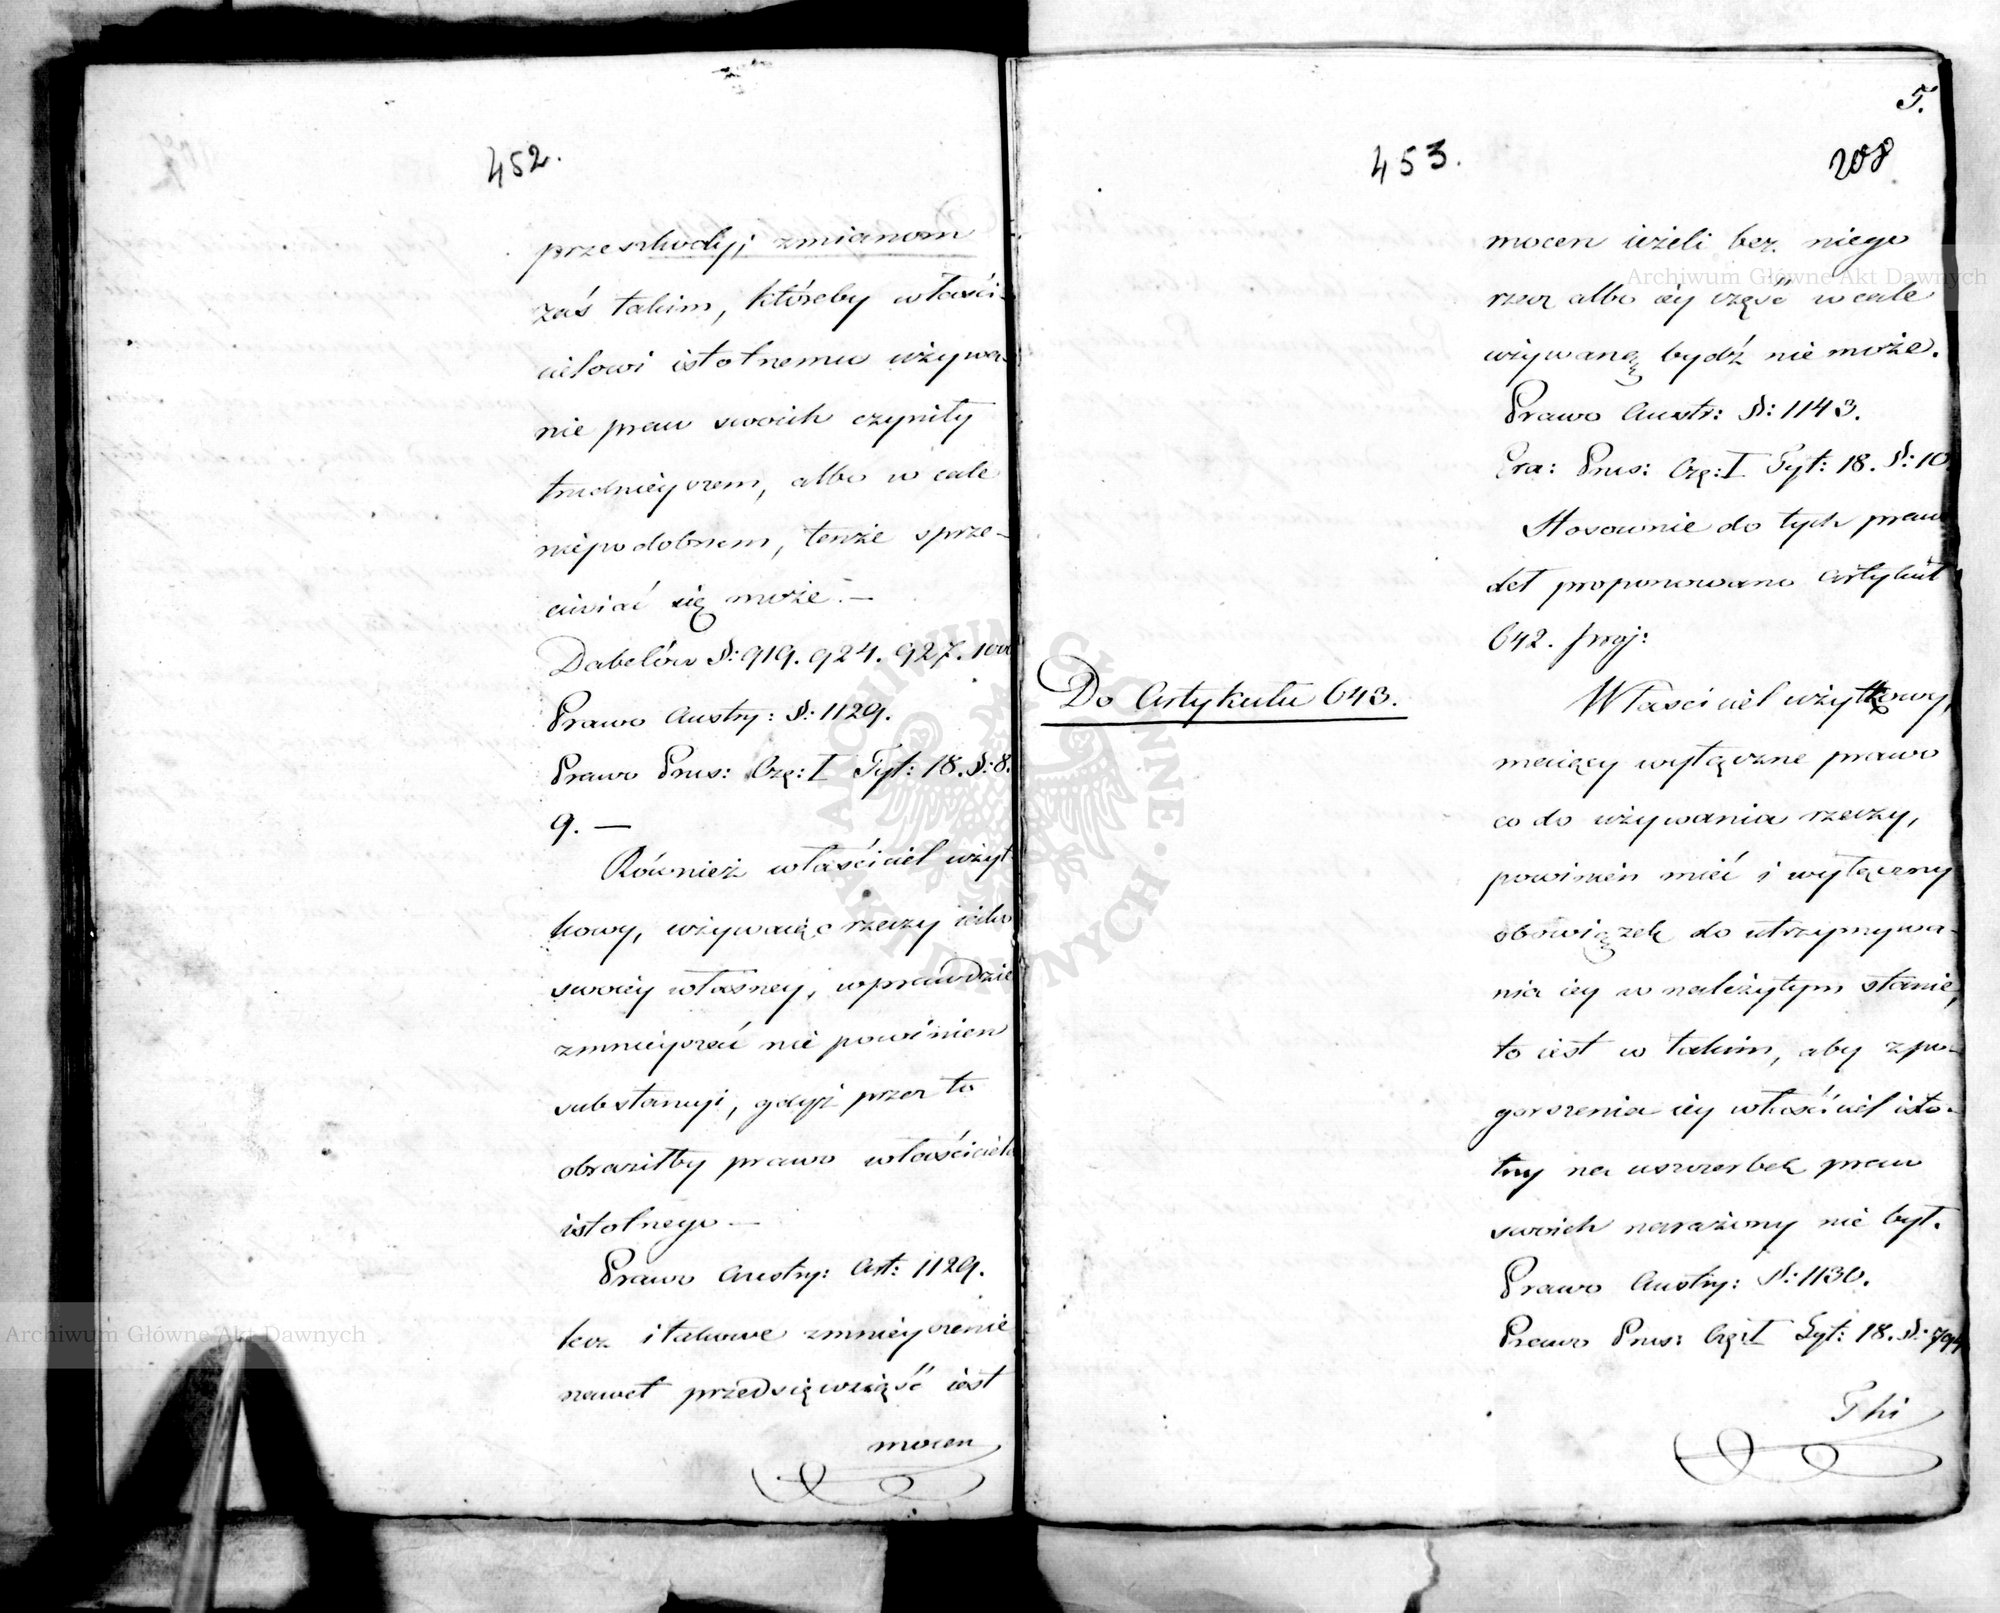 452.
przeszkody; zmianom
zaś takim, któreby właści-
cielowi istotnemu używa-
nie praw swoich czyniły
trudnieyszem, albo w cale
niepodobnem, tenże sprze-
ciwiać się może. —
Dabelów §: 919. 924. 927.
Prawo Austry: §: 1129.
Prawo Prus: Czę: I Tyt: 18. §: 8.
9. —
Również właściciel użyt-
kowy, używaiąc rzeczy iako
swoiey własney, wprawdzie
zmnieyszać nie powinien
substancyi, gdyż przez to
obraziłby prawo właściciela
istotnego —
Prawo Austry: Art: 1129.
lecz i takowe zmnieyszenie
nawet przedsięwziąść iest
mocen
5.
453.
208
mocen ieżeli bez niego
rzecz albo iey część w cale
używaną bydź nie może.
Prawo Austr: §: 1143.
Pra: Prus: Czę: I Tyt: 18. §: 10.
Stosownie do tych praw
det proponowano Artykuł
642. proj:
Do Artykułu 643.
Właściciel użytkowy,
maiący wyłączne prawo
co do używania rzeczy,
powinien mieć i wyłączny
obowiązek do utrzymywa-
nia iey w należytym stanie,
to iest w takim, aby z po-
gorszenia iey właściciel isto-
tny na uszczerbek praw
swoich narażony nie był.
Prawo Austry: §: 1130.
Prawo Prus: Czę: I Tyt: 18. §:
Archiwum Główne Akt Dawnych
Archiwum Główne Akt Dawnych
ARCHIWUM GŁÓWNE AKT DAWNYCH